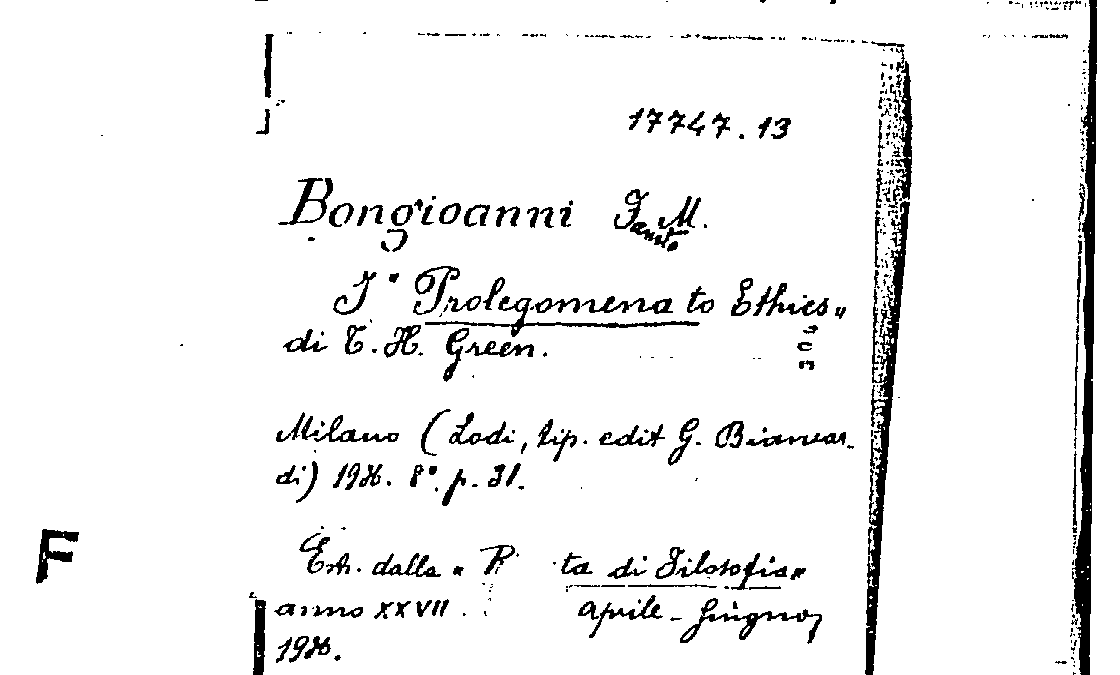 17747.13
Bongioanni F. M.
Fausto
I " Prolegomena to Ethics "
di T. H. Green.
Milano (Lodi, tip. edit G. Biancar-
di) 1936. 8°. p. 31.
Estr. dalla " R ta di Filosofia "
anno XXVII. aprile - giugno,
1936.
F